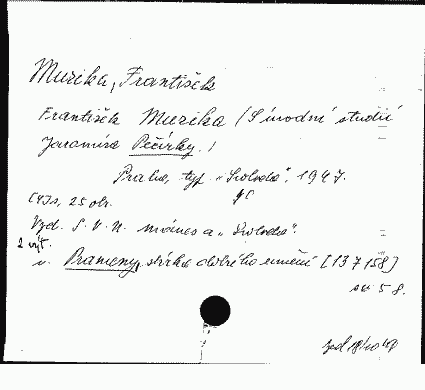 Muzika, František
František Muzika (S úvodní studií
Jaromíra Pečírky.)
Praha, typ. „Svoboda", 1947.
25 obr.
Vyd. S. V. U. Mánes a „Svoboda".
2 výt.
v. Prameny, sbírka dobrého umění [137158]
sv. 58.